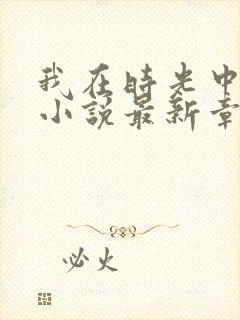 我在時光中
小說最新章
必火